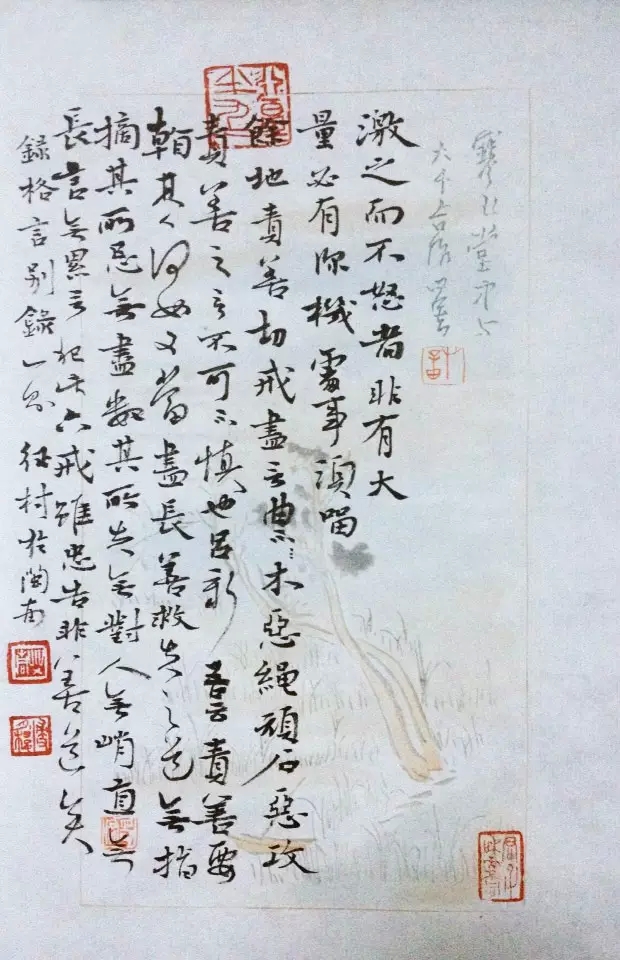 激之而不怒者非有大
量必有深機處事須留
餘地責善切戒盡言曲木惡繩頑石惡攻
責善之言不可不慎也呂新吾云責善要
其人何如又當盡長善救失之道無指
摘其所忌無盡數其所失無對人無峭直無
長言無累言犯此六戒雖忠告非善道矣
錄格言別錄一則 村於閩南